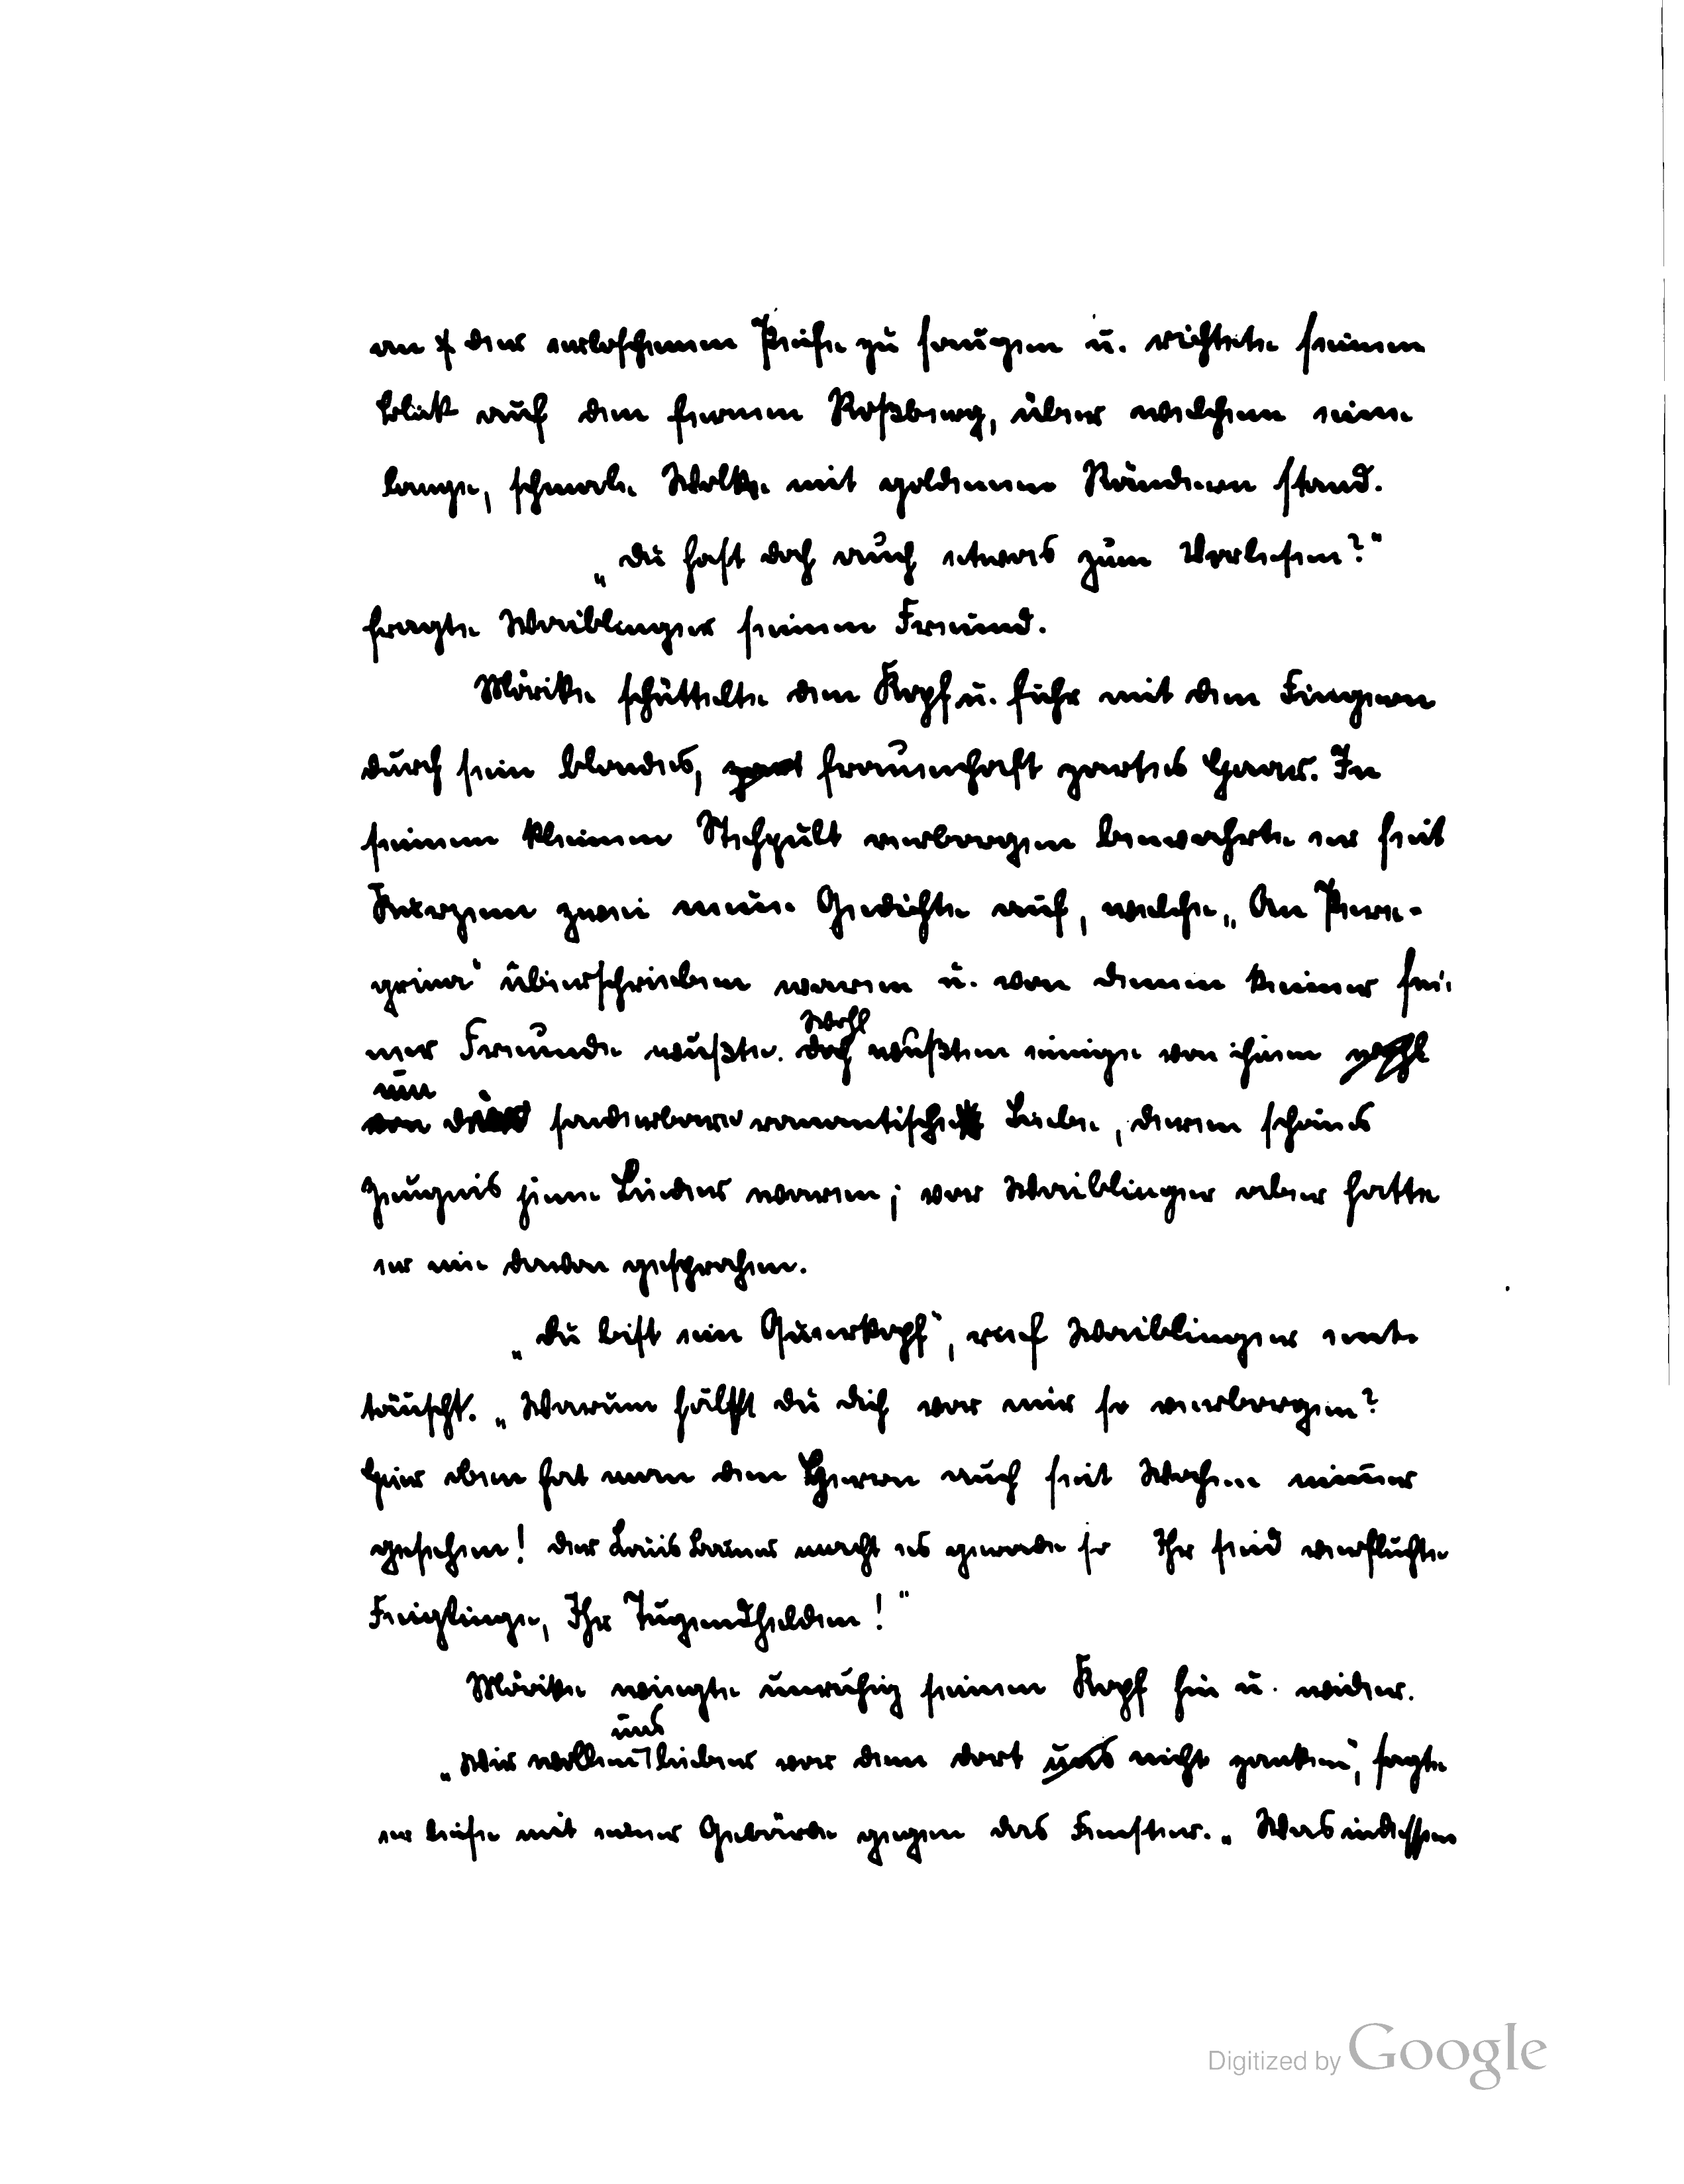 an der erloschenen Pfeife zu saugen u. richtete seinen
Blick auf den fernen Roßberg, über welchem eine
lange, schmale Wolke mit goldenen Rändern stand.
„Du hast doch auch etwas zum Vorlesen?"
fragte Waiblinger seinen Freund.
Mörike schüttelte den Kopf u. fuhr mit den Fingern
durch sein blondes, zart frauenhaft zartes Haar. In
seinem kleinen Stehpult verborgen bewahrte er seit
Kurzem zwei neue Gedichte auf, welche „An Pere-
grina" überschrieben waren u. von denen keiner sei-
Wohl
ner Freunde wußte. Doch wußten einige von ihnen wohl
um
von die sonderbare romantische Liebe, deren schönes
Zeugnis jene Lieder waren; vor Waiblinger aber hatte
er nie davon gesprochen.
„Du bist ein Querkopf", rief Waiblinger ent-
täuscht. „Warum hältst du dich vor mir so verborgen?
Hier oben hat man den Herrn auch seit Wochen nimmer
gesehen! Der Louis Bauer macht es gerade so Ihr seid verfluchte
Feiglinge, Ihr Tugendhelden!"
Mörike wiegte unruhig seinen Kopf hin u. wider.
uns
„Wir wollen lieber vor dem dort uns nicht zanken", sagte
er leise mit einer Gebärde gegen das Fenster. „Was indessen
Digitized by Google